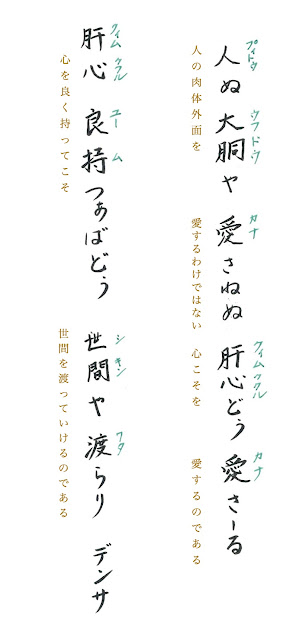 プィトゥ ウフドゥ カナ クィムゥクル カナ
人ぬ 大胴や 愛さねぬ 肝心どぅ 愛さーる
人の肉体外面を 愛するわけではない 心こそを 愛するのである
クィムゥクル ユー ム シキン ワタ
肝心 良持つぁばどぅ 世間や 渡らり デンサ
心を良く持ってこそ 世間を渡っていけるのである